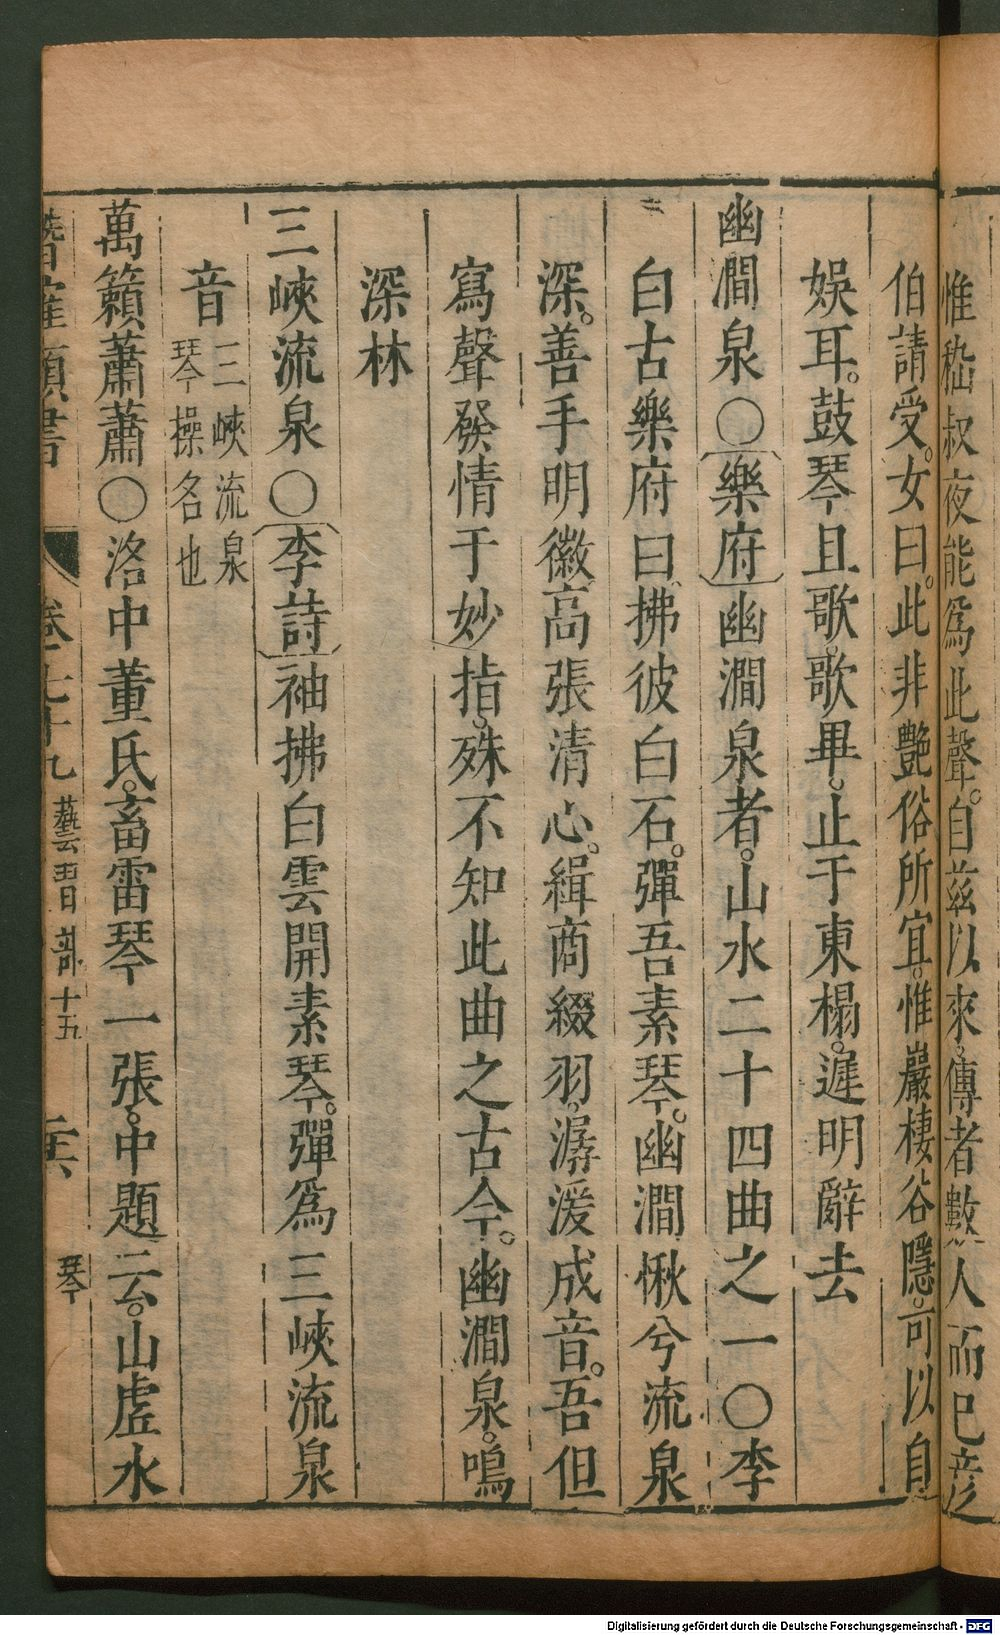 惟嵇叔夜能為此聲。自茲以來。傳者數人而已。彦
伯請受。女曰。此非艶俗所宜。惟巖棲谷隱。可以自
娛耳。鼓琴且歌。歌畢。止于東榻。遲明辭去
幽澗泉○樂府幽澗泉者。山水二十四曲之一○李
白古樂府曰拂彼白石。彈吾素琴。幽澗愀兮流泉
深。善手明徽高張清心。緝商綴羽。潺湲成音。吾但
寫聲發情于妙指。殊不知此曲之古今。幽澗泉。鳴
深林
三峽流泉○李詩袖拂白雲開素琴。彈為三峽流泉
音三峽流泉
琴操名也
萬籟蕭蕭○洛中董氏。畜雷琴一張。中題云。山虛水
卷一百七十九 藝習部十五 二十六 琴
Digitalisierung gefördert durch die Deutsche Forschungsgemeinschaft - DFG